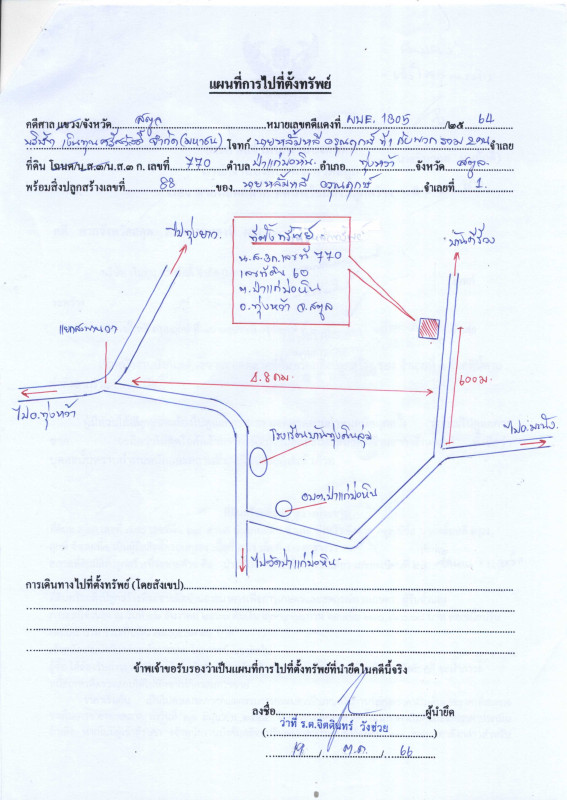 แผนที่การไปที่ตั้งทรัพย์
คดีศาล แขวง/จังหวัด สตูล หมายเลขคดีแดงที่ ผบE. 1305 /๒๕ 64
บริษัท เงินทุน ศรีสวัสดิ์ จำกัด (มหาชน) โจทก์ นายหลีมหลี อรุณฤกษ์ ที่1 กับพวกรวม 2คน จำเลย
ที่ดิน โฉนด/น.ส.๓/น.ส.๓ ก. เลขที่ 770 ตำบล ป่าแก่บ่อหิน อำเภอ ทุ่งหว้า จังหวัด สตูล
พร้อมสิ่งปลูกสร้างเลขที่ 88 ของ นายหลีมหลี อรุณฤกษ์ จำเลยที่ 1.
ไปทุ่งยาว.
ที่ตั้งทรัพย์
น.ส.3ก.เลขที่ 770
เลขที่ดิน 60
ต.ป่าแก่บ่อหิน
อ.ทุ่งหว้า จ.สตูล
บ้านคีรีวง
แยกสะพานวา
4.8 กม.
600 ม.
ไปอ.ทุ่งหว้า
โรงเรียนบ้านทุ่งดินลุ่ม
ไปอ.มะนัง.
อบต.ป่าแก่บ่อหิน
ไปวัดป่าแก่บ่อหิน
การเดินทางไปที่ตั้งทรัพย์ (โดยสังเขป)
ข้าพเจ้าขอรับรองว่าเป็นแผนที่การไปที่ตั้งทรัพย์ที่นำยึดในคดีนี้จริง
ลงชื่อ ผู้นำยึด
( ว่าที่ ร.ต.จิตตินทร์ วังช่วย )
19 / ต.ค. / 66